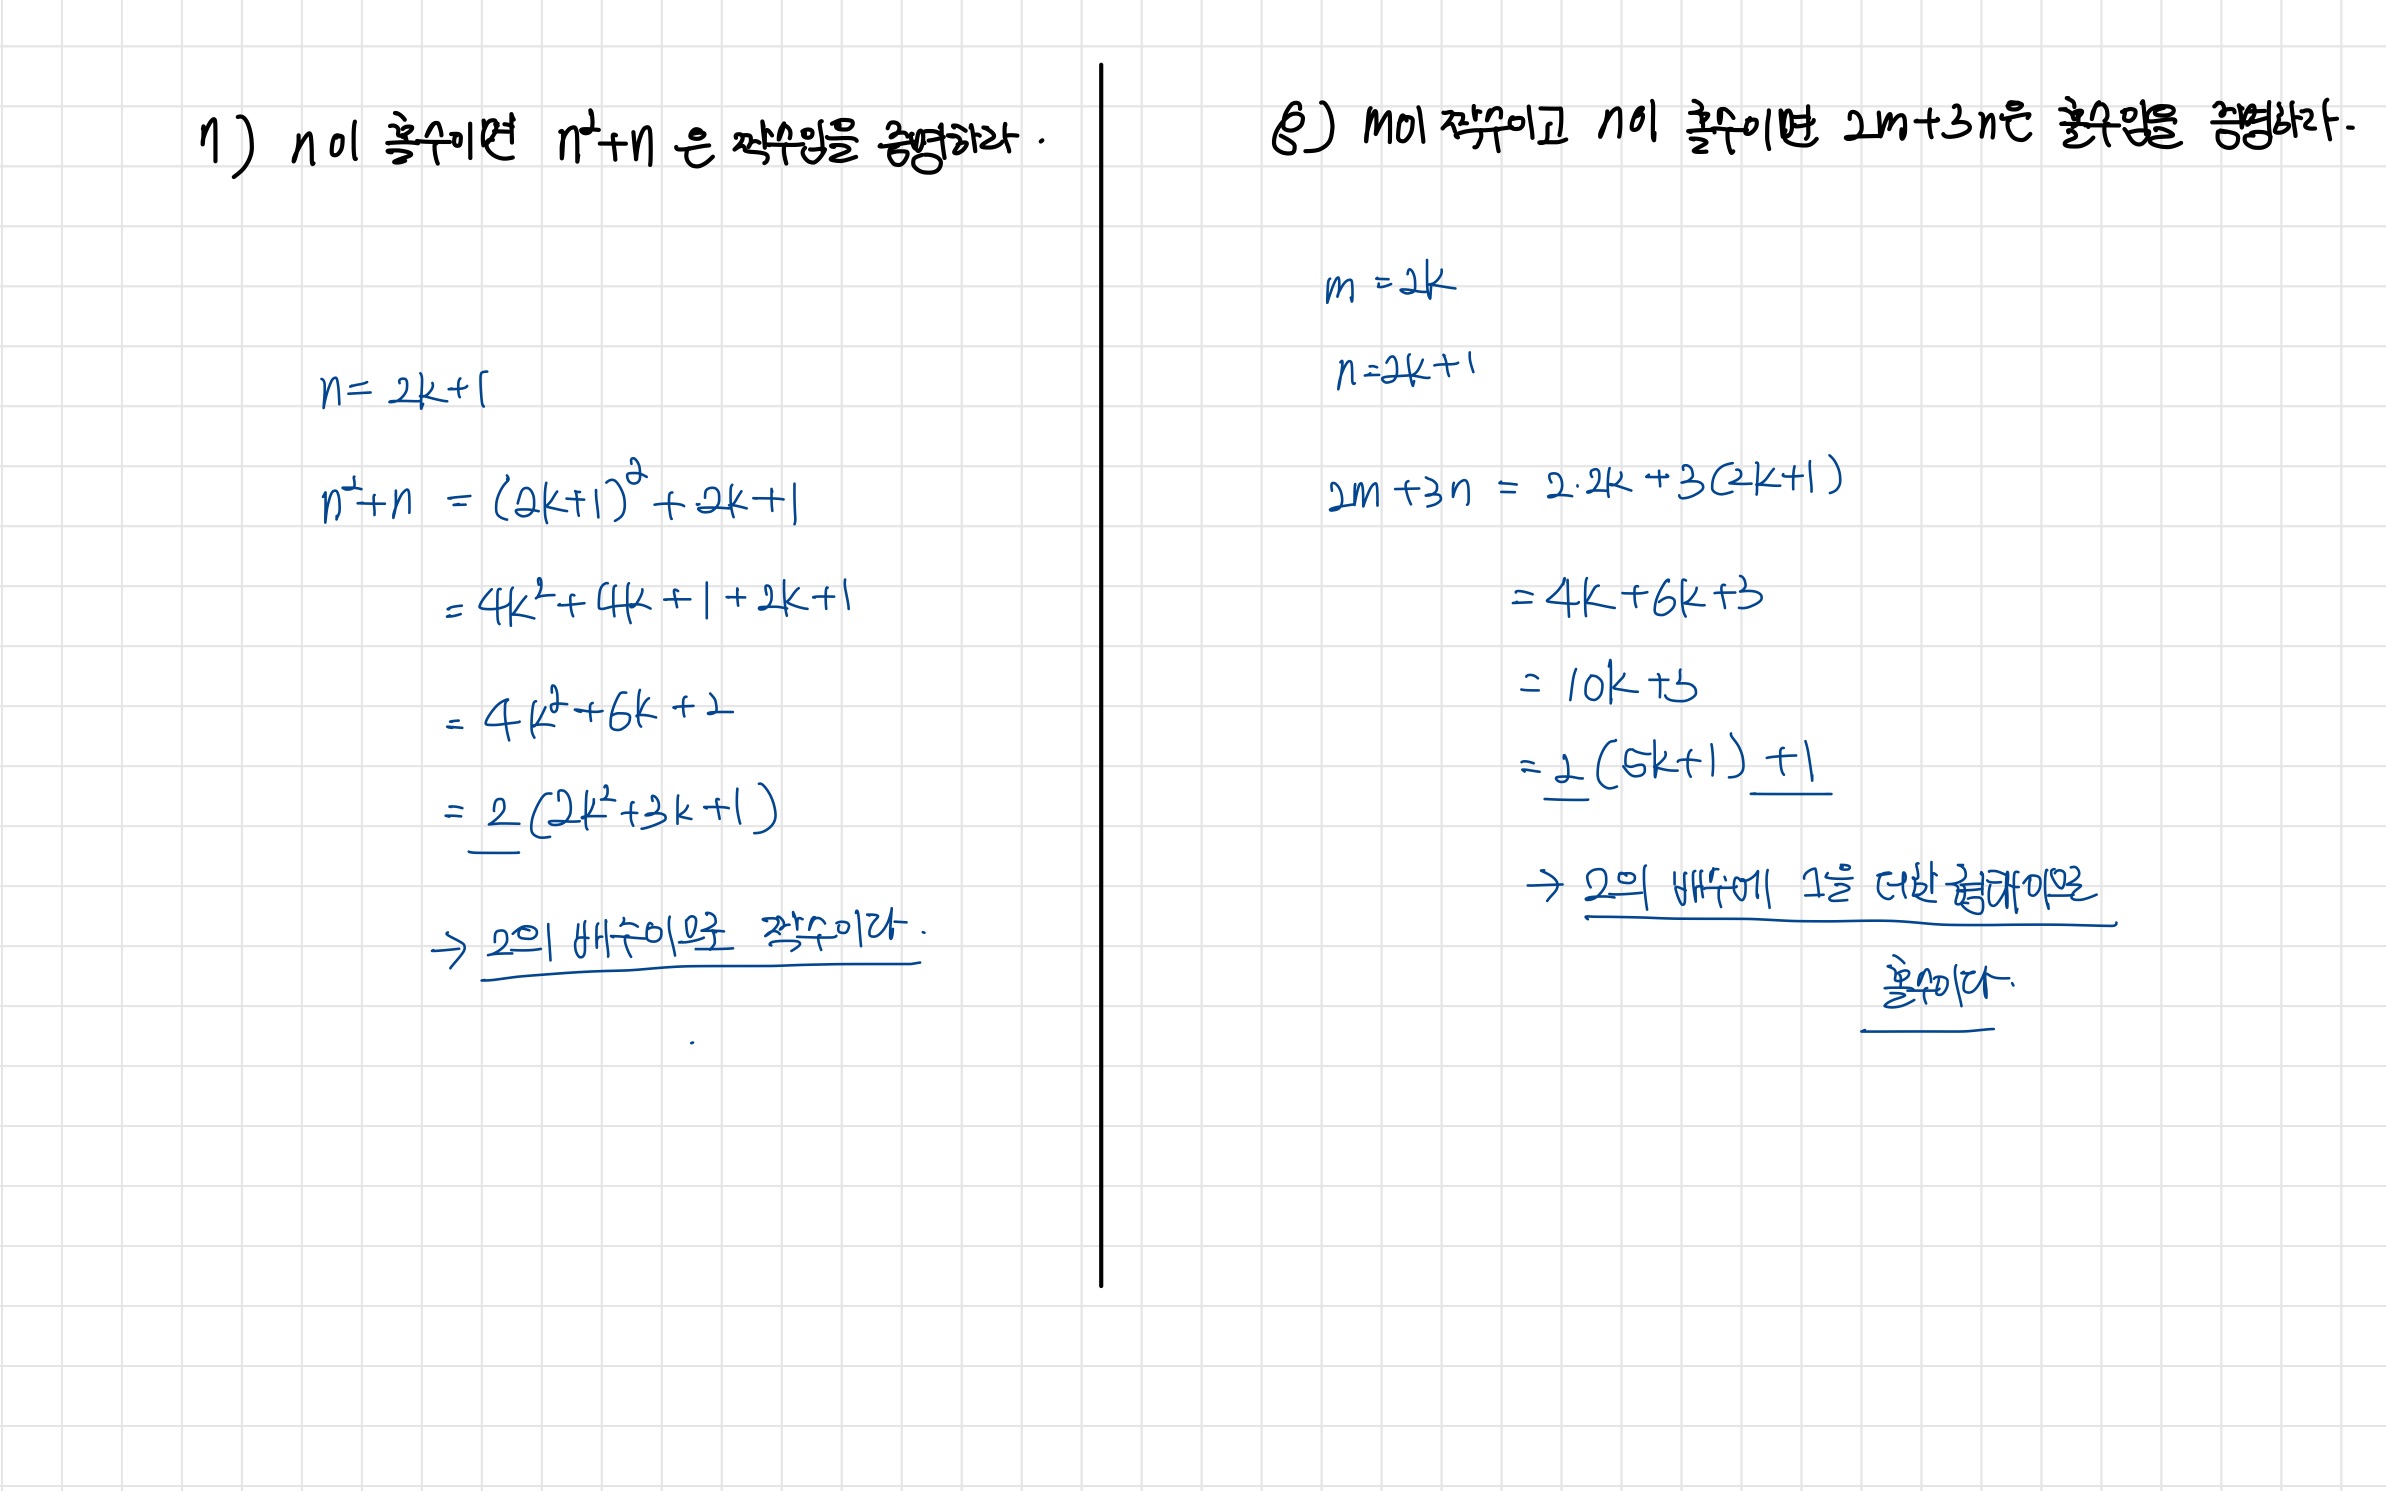 7) n이 홀수이면 n²+n 은 짝수임을 증명하라.
n = 2k+1
n²+n = (2k+1)² + 2k+1
= 4k² + 4k + 1 + 2k + 1
= 4k² + 6k + 2
= 2(2k²+3k+1)
→ 2의 배수이므로 짝수이다.
8) m이 짝수이고 n이 홀수이면 2m+3n은 홀수임을 증명하라.
m = 2k
n = 2k+1
2m+3n = 2·2k + 3(2k+1)
= 4k + 6k + 3
= 10k + 3
= 2(5k+1) + 1
→ 2의 배수에 1을 더한 형태이므로
홀수이다.